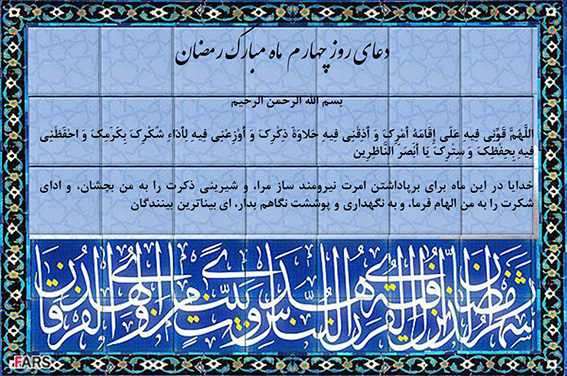 دعای روز چهارم ماه مبارک رمضان
بسم الله الرحمن الرحیم
اللَّهُمَّ قَوِّنِی فِیهِ عَلَی إِقَامَةِ أَمْرِکَ وَ أَذِقْنِی فِیهِ حَلاوَةَ ذِکْرِکَ وَ أَوْزِعْنِی فِیهِ لِأَدَاءِ شُکْرِکَ بِکَرَمِکَ وَ احْفَظْنِی
فِیهِ بِحِفْظِکَ وَ سِتْرِکَ یَا أَبْصَرَ النَّاظِرِینَ
خدایا در این ماه برای برپاداشتن امرت نیرومند ساز مرا، و شیرینی ذکرت را به من بچشان، و ادای
شکرت را به من الهام فرما، و به نگهداری و پوششت نگاهم بدار، ای بیناترین بینندگان
شهر رمضان الذی انزل فیه القرآن هدی للناس و بینات من الهدی و الفرقان
FARS